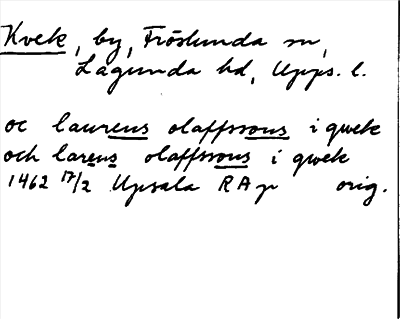 Kvek, by, Fröslunda sn,
Lagunda hd, Upps. l.
oc laurens olaffssons i qwek
och larens olaffssons i qwek
1462 17/2 Upsala RAp orig.